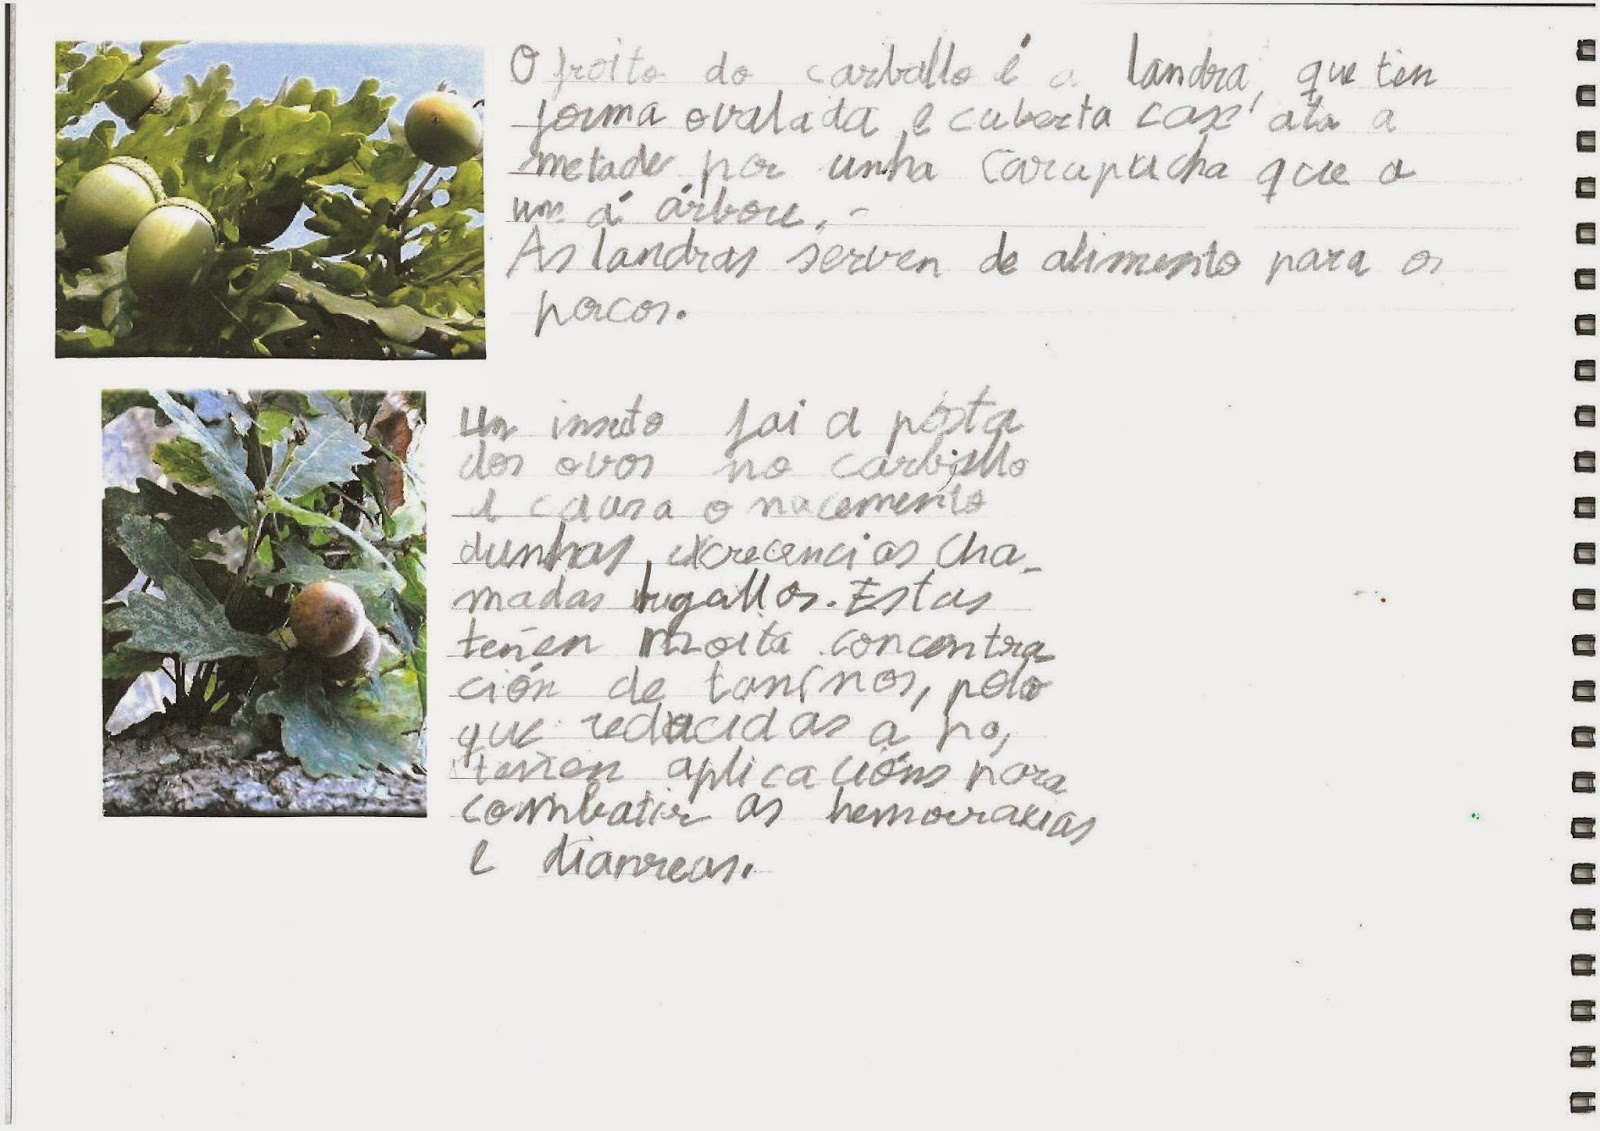 O froito do carballo é a landra, que ten
forma ovalada e cuberta case ata a
metade por unha carapucha que a
une á árbore.
As landras serven de alimento para os
porcos.
Un insecto fai a posta
dos ovos no carballo
e causa o nacemento
dunhas excrecencias cha-
madas bugallos. Estas
teñen moita concentra
ción de taninos, polo
que reducidas a po,
teñen aplicacións para
combatir as hemorraxias
e diarreas.